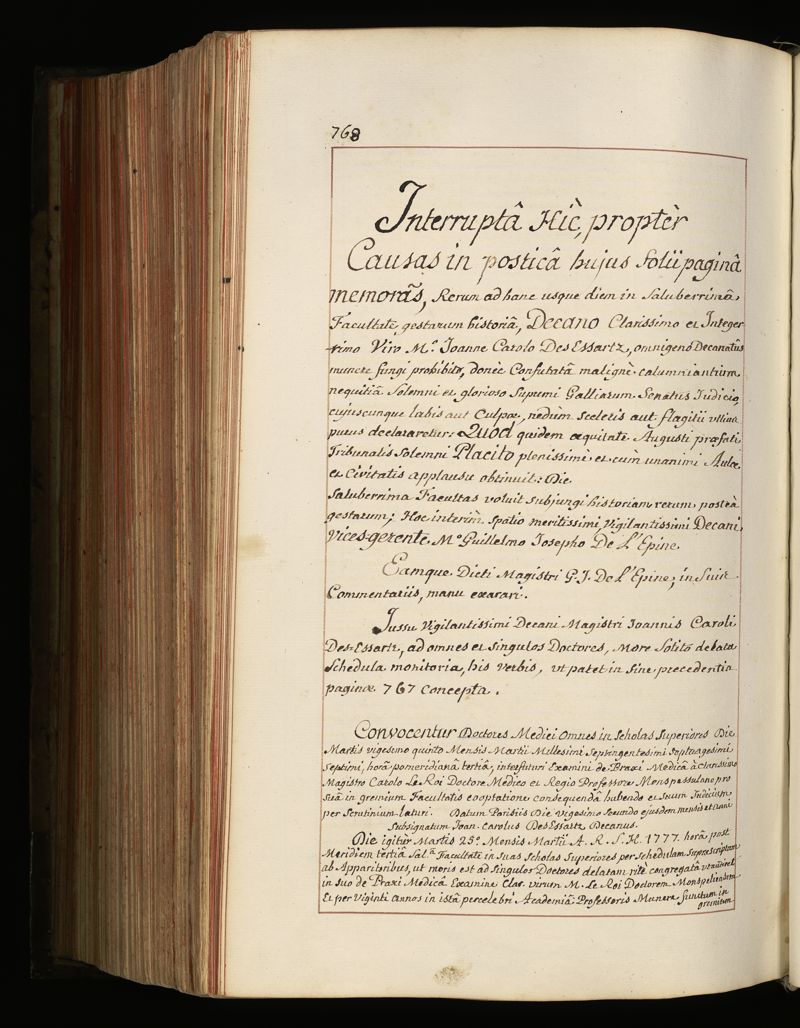 768
Interruptâ Hîc, proptèr
Causas in posticâ hujus folii paginâ
memorãs, Rerum ad hanc usque diem in Saluberrimâ
Facultate, gestarum historiâ, Decano Clarissimo et Integer-
-rimo Viro M.º Joanne Carolo DesEssartz, omnigenô Decanatûs
munere fungi prohibitô, donèc Confutatâ malignè calumniantium
nequitiâ Solemni et glorioso Supremi Galliarum Senatus Judicio,
cujuscunque labis aut Culpæ, nedum sceleris aut flagitii ullius
purus declararetur: Quod quidem æquitate Augusti præfati
Tribunalis Solemni Placito plenissimè et cum unanimi Aulæ
et Civitatis applausu obtinuit: Die
Saluberrima Facultas voluit subjungi historiam rerum posteà
gestarum; Hoc interìm Spatio meritissimi, Vigilantissimi Decani,
vices-gerente M.º Guillelmo Josepho De L'Epine.
Eamque Dicti Magistri G. J. De L'Epine, in Suis
Commentariis, manu exarari.
Jussu Vigilantissimi Decani Magistri Joannis Caroli
Des-Essartz, ad omnes et singulos Doctores, More Solitô delata
Schedula monitoria, his verbis, ut patet in fine precedentis
paginæ 767 concepta.
Convocentur Doctores Medici Omnes in Scholas Superiores Die
Martis vigesimo quinto Mensis Martii Millesimi Septingentesimi Septuagesimi
Septimi, horâ pomeridianâ tertiâ, interfuturi Examini de Praxi Medicâ à Clarissimo
Magistro Carolo Le Roi Doctore Medico et Regio Professore Monspessulano pro
suâ in gremium Facultatis cooptatione consequendâ habendo et suum Judicium
per Scrutinium laturi. Datum Parisiis Die Vigesimo Secundo ejusdem mensis et anni
Subsignatum Joan. Carolus DesEssartz Decanus.
Die igitùr Martis 25º Mensis Martii A. R. S. H. 1777. horâ post
Meridiem tertiâ, Sal.ª Facultate in suas Scholas Superiores per schedulam Suprascriptam
ab Apparitoribus, ut moris est ad singulos Doctores delatam ritè congregatâ ut audiret
in suo de Praxi Medicâ Examine Clar. virum M. Le Roi Doctorem Monspeliensem
Et per Viginti annos in istâ percelebri Academiâ Professoris Munere functum in
gremium